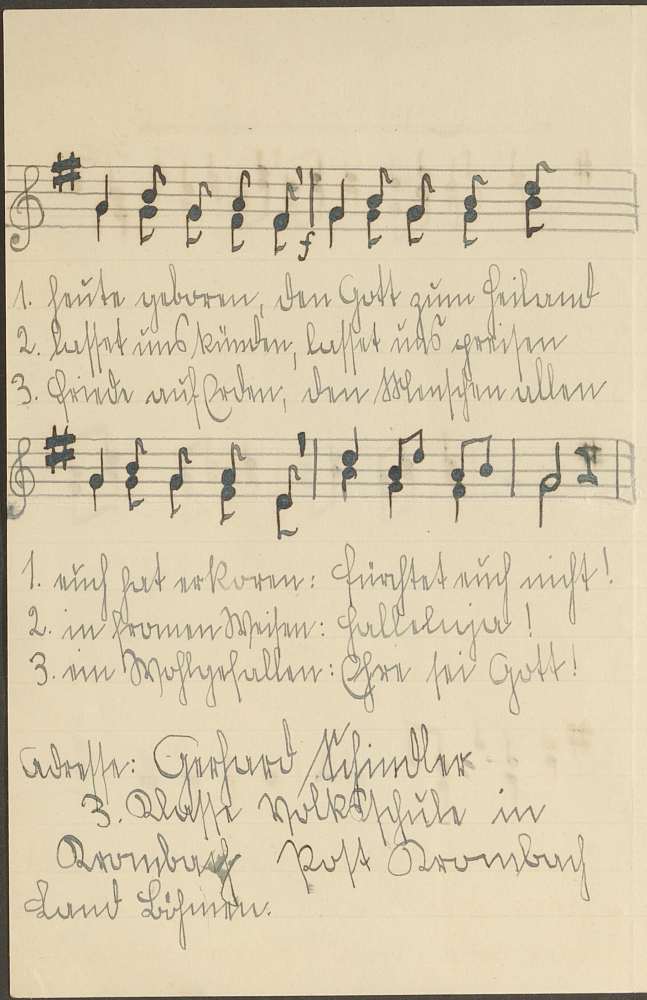 f
1. heute geboren, den Gott zum Heiland
2. lasset uns künden, lasset uns preisen
3. Friede auf Erden, den Menschen allen
1. euch hat erkoren: Fürchtet euch nicht!
2. in fromen Weisen: Halleluja!
3. ein Wohlgefallen: Ehre sei Gott!
Adresse: Gerhard Schindler
3. Klasse Volksschule in
Krombach Post Krombach
Land Böhmen.